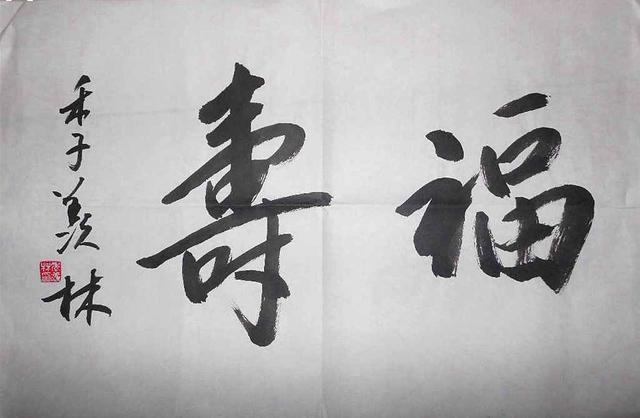 福壽
季羡林